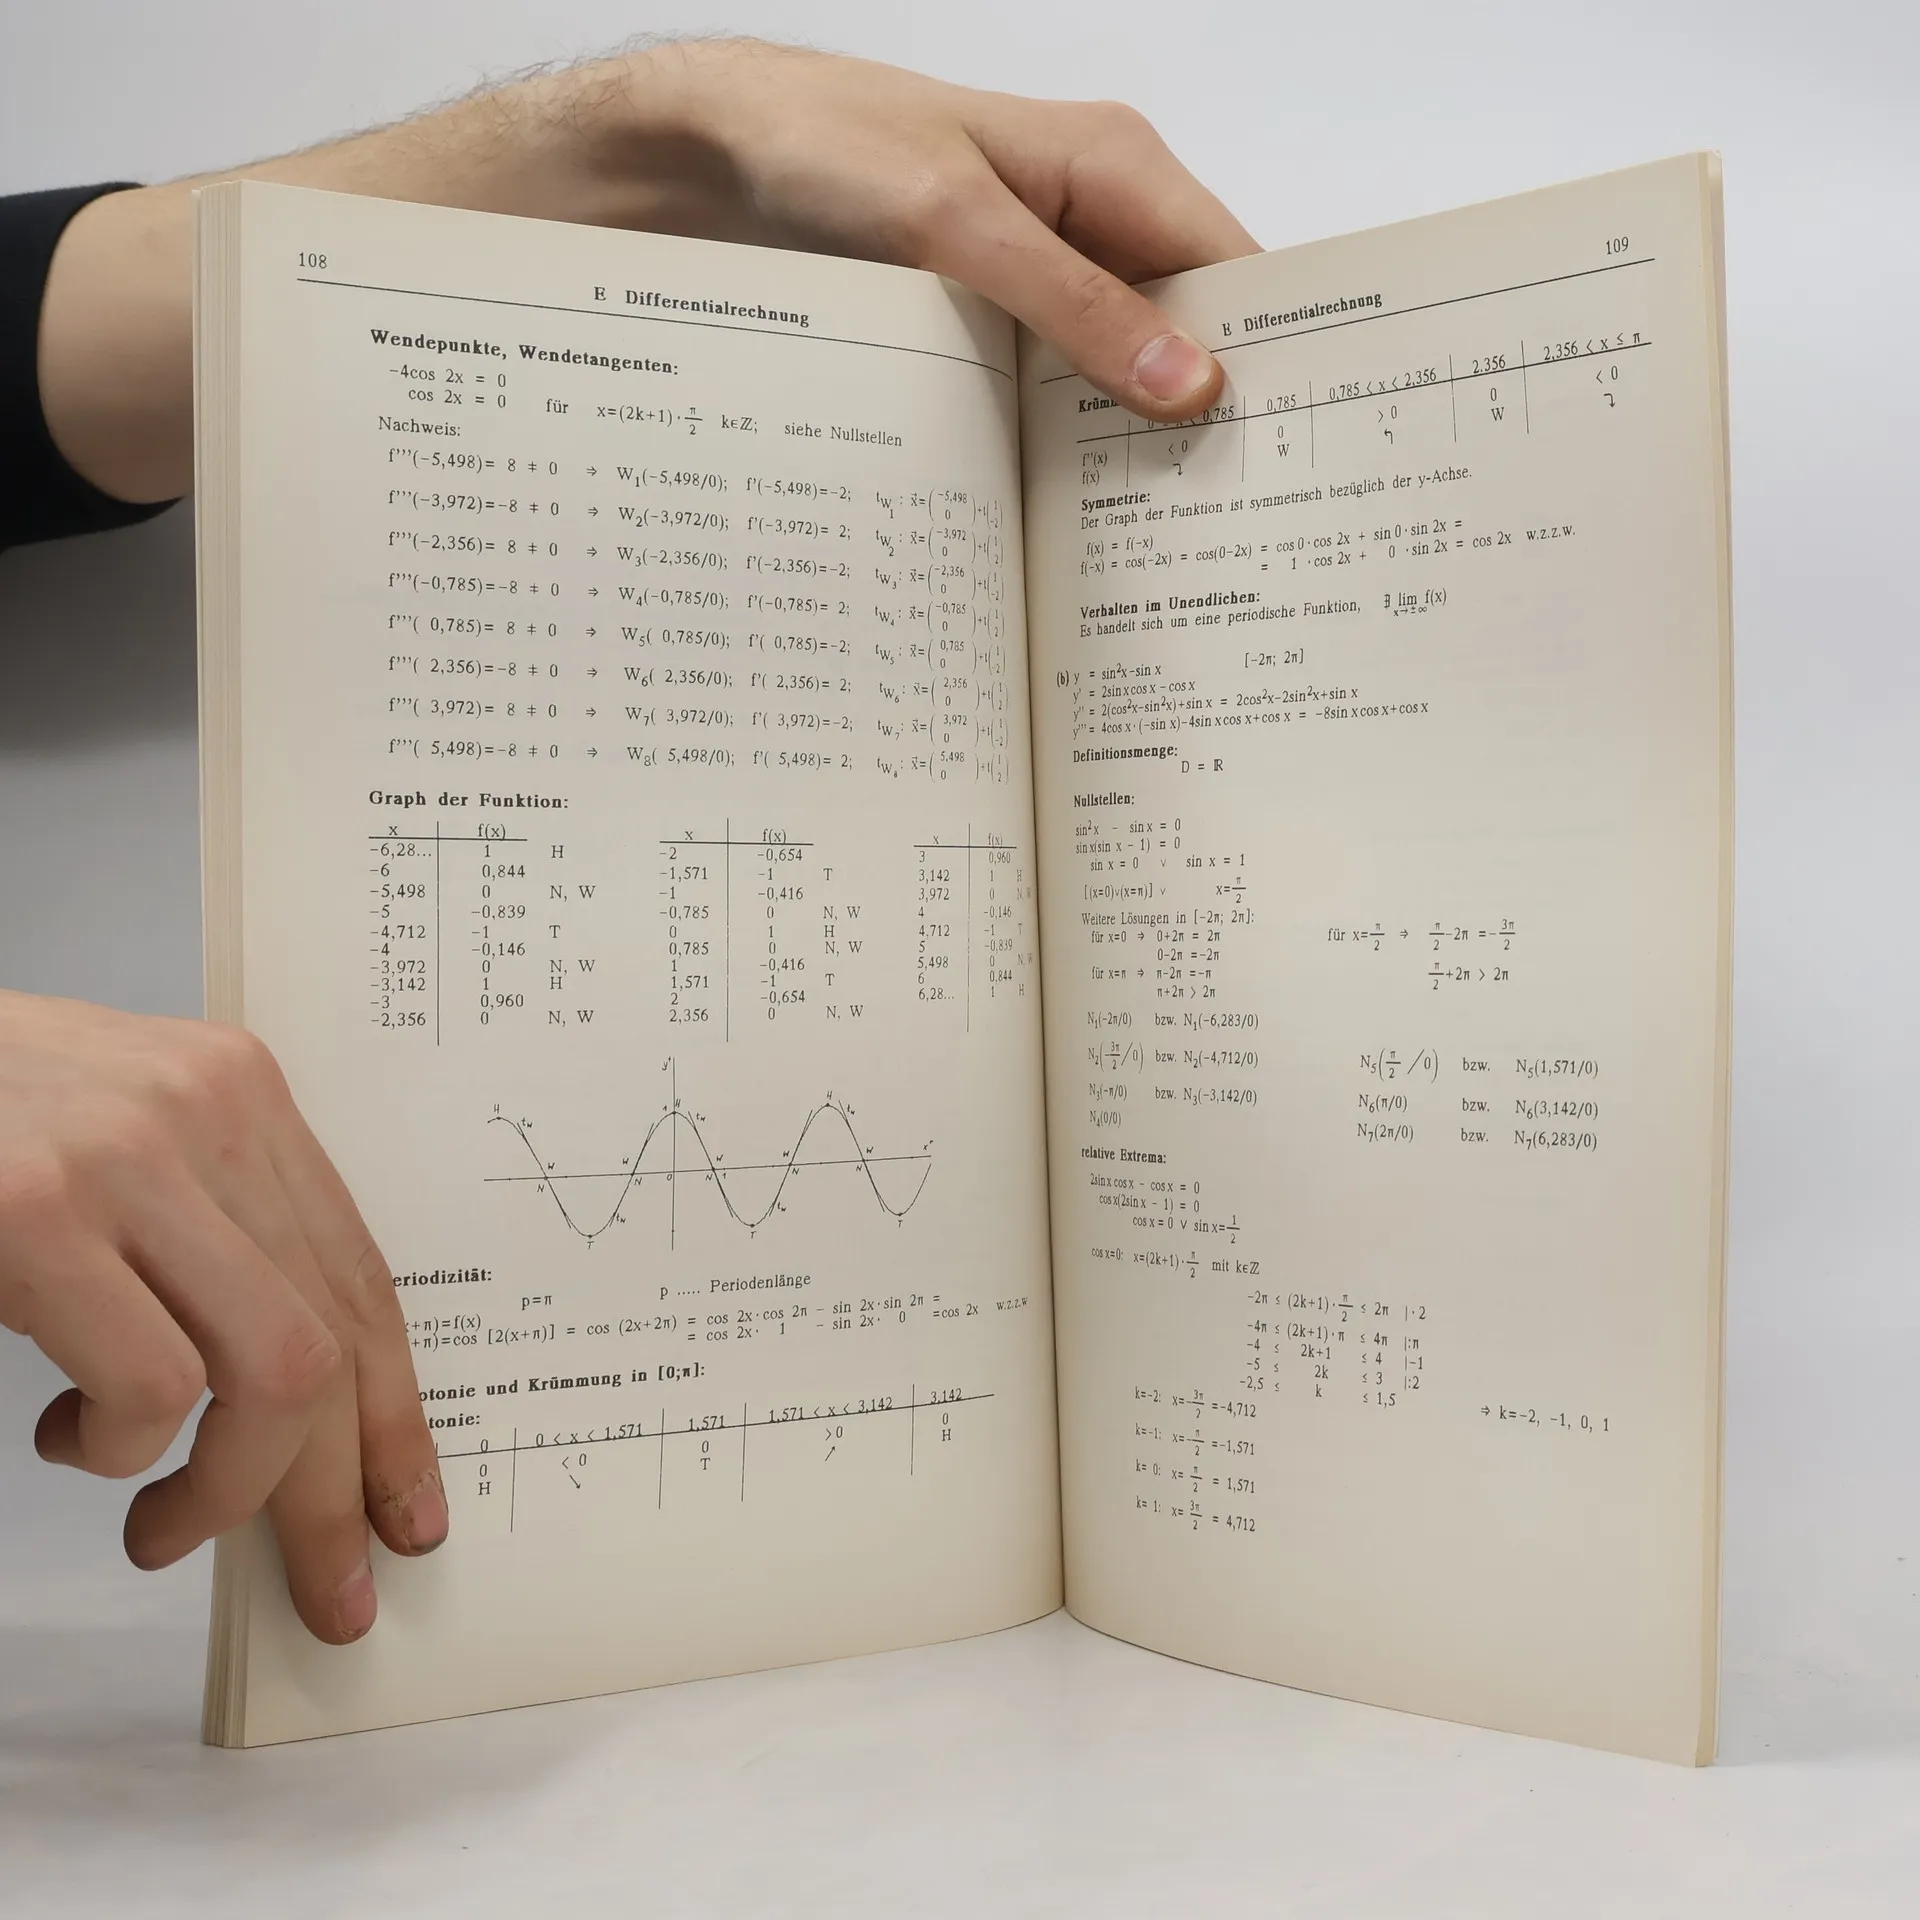 108
E Differentialrechnung
Wendepunkte, Wendetangenten:
-4cos 2x = 0
cos 2x = 0 für x=(2k+1)·π/2 k∈ℤ; siehe Nullstellen
Nachweis:
f'''(-5,498)= 8 ≠ 0 ⇒ W₁(-5,498/0); f'(-5,498)=-2; t_W₁: x⃗=(-5,498 0)+t(1 -2)
f'''(-3,972)=-8 ≠ 0 ⇒ W₂(-3,972/0); f'(-3,972)= 2; t_W₂: x⃗=(-3,972 0)+t(1 2)
f'''(-2,356)= 8 ≠ 0 ⇒ W₃(-2,356/0); f'(-2,356)=-2; t_W₃: x⃗=(-2,356 0)+t(1 -2)
f'''(-0,785)=-8 ≠ 0 ⇒ W₄(-0,785/0); f'(-0,785)= 2; t_W₄: x⃗=(-0,785 0)+t(1 2)
f'''( 0,785)= 8 ≠ 0 ⇒ W₅( 0,785/0); f'( 0,785)=-2; t_W₅: x⃗=(0,785 0)+t(1 -2)
f'''( 2,356)=-8 ≠ 0 ⇒ W₆( 2,356/0); f'( 2,356)= 2; t_W₆: x⃗=(2,356 0)+t(1 2)
f'''( 3,972)= 8 ≠ 0 ⇒ W₇( 3,972/0); f'( 3,972)=-2; t_W₇: x⃗=(3,972 0)+t(1 -2)
f'''( 5,498)=-8 ≠ 0 ⇒ W₈( 5,498/0); f'( 5,498)= 2; t_W₈: x⃗=(5,498 0)+t(1 2)
Graph der Funktion:
x f(x) x f(x) x f(x)
-6,28... 1 H -2 -0,654 3 0,960
-6 0,844 -1,571 -1 T 3,142 1 H
-5,498 0 N, W -1 -0,416 3,972 0 N, W
-5 -0,839 -0,785 0 N, W 4 -0,146
-4,712 -1 T 0 1 H 4,712 -1 T
-4 -0,146 0,785 0 N, W 5 -0,839
-3,972 0 N, W 1 -0,416 5,498 0 N, W
-3,142 1 H 1,571 -1 T 6 0,844
-3 0,960 2 -0,654 6,28... 1 H
-2,356 0 N, W 2,356 0 N, W
y
H t_W 1 H t_W H t_W
W W W W W x
N N 0 N 1 N N
t_W t_W
T T T
eriodizität:
p=π p ..... Periodenlänge
x+π)=f(x)
+π)=cos [2(x+π)] = cos (2x+2π) = cos 2x·cos 2π - sin 2x·sin 2π =
= cos 2x· 1 - sin 2x· 0 =cos 2x w.z.z.w
otonie und Krümmung in [0;π]:
tonie:
0 0 < x < 1,571 1,571 1,571 < x < 3,142 3,142
0 < 0 0 >0 0
H ↘ T ↗ H
109
E Differentialrechnung
Krüm
< 0,785 0,785 0,785 < x < 2,356 2.356 2,356 < x ≤ π
f''(x) < 0 0 > 0 0 < 0
f(x) W W
Symmetrie:
Der Graph der Funktion ist symmetrisch bezüglich der y-Achse.
f(x) = f(-x)
f(-x) = cos(-2x) = cos(0-2x) = cos 0·cos 2x + sin 0·sin 2x =
= 1 ·cos 2x + 0 ·sin 2x = cos 2x w.z.z.w.
Verhalten im Unendlichen:
Es handelt sich um eine periodische Funktion, ∄ lim f(x) x→±∞
(b) y = sin²x-sin x [-2π; 2π]
y' = 2sin x cos x - cos x
y'' = 2(cos²x-sin²x)+sin x = 2cos²x-2sin²x+sin x
y''' = 4cos x·(-sin x)-4sin x cos x+cos x = -8sin x cos x+cos x
Definitionsmenge:
D = ℝ
Nullstellen:
sin²x - sin x = 0
sin x(sin x - 1) = 0
sin x = 0 ∨ sin x = 1
[(x=0)∨(x=π)] ∨ x=π/2
Weitere Lösungen in [-2π; 2π]:
für x=0 ⇒ 0+2π = 2π für x=π/2 ⇒ π/2-2π =-3π/2
0-2π =-2π
für x=π ⇒ π-2π =-π π/2+2π > 2π
π+2π > 2π
N₁(-2π/0) bzw. N₁(-6,283/0)
N₂(-3π/2 /0) bzw. N₂(-4,712/0) N₅(π/2 /0) bzw. N₅(1,571/0)
N₃(-π/0) bzw. N₃(-3,142/0) N₆(π/0) bzw. N₆(3,142/0)
N₄(0/0) N₇(2π/0) bzw. N₇(6,283/0)
relative Extrema:
2sin x cos x - cos x = 0
cos x(2sin x - 1) = 0
cos x = 0 ∨ sin x=1/2
cos x=0: x=(2k+1)·π/2 mit k∈ℤ
-2π ≤ (2k+1)·π/2 ≤ 2π |·2
-4π ≤ (2k+1)·π ≤ 4π |:π
-4 ≤ 2k+1 ≤ 4 |-1
-5 ≤ 2k ≤ 3 |:2
-2,5 ≤ k ≤ 1,5 ⇒ k=-2, -1, 0, 1
k=-2: x=-3π/2 =-4,712
k=-1: x=-π/2 =-1,571
k= 0: x= π/2 = 1,571
k= 1: x= 3π/2 = 4,712